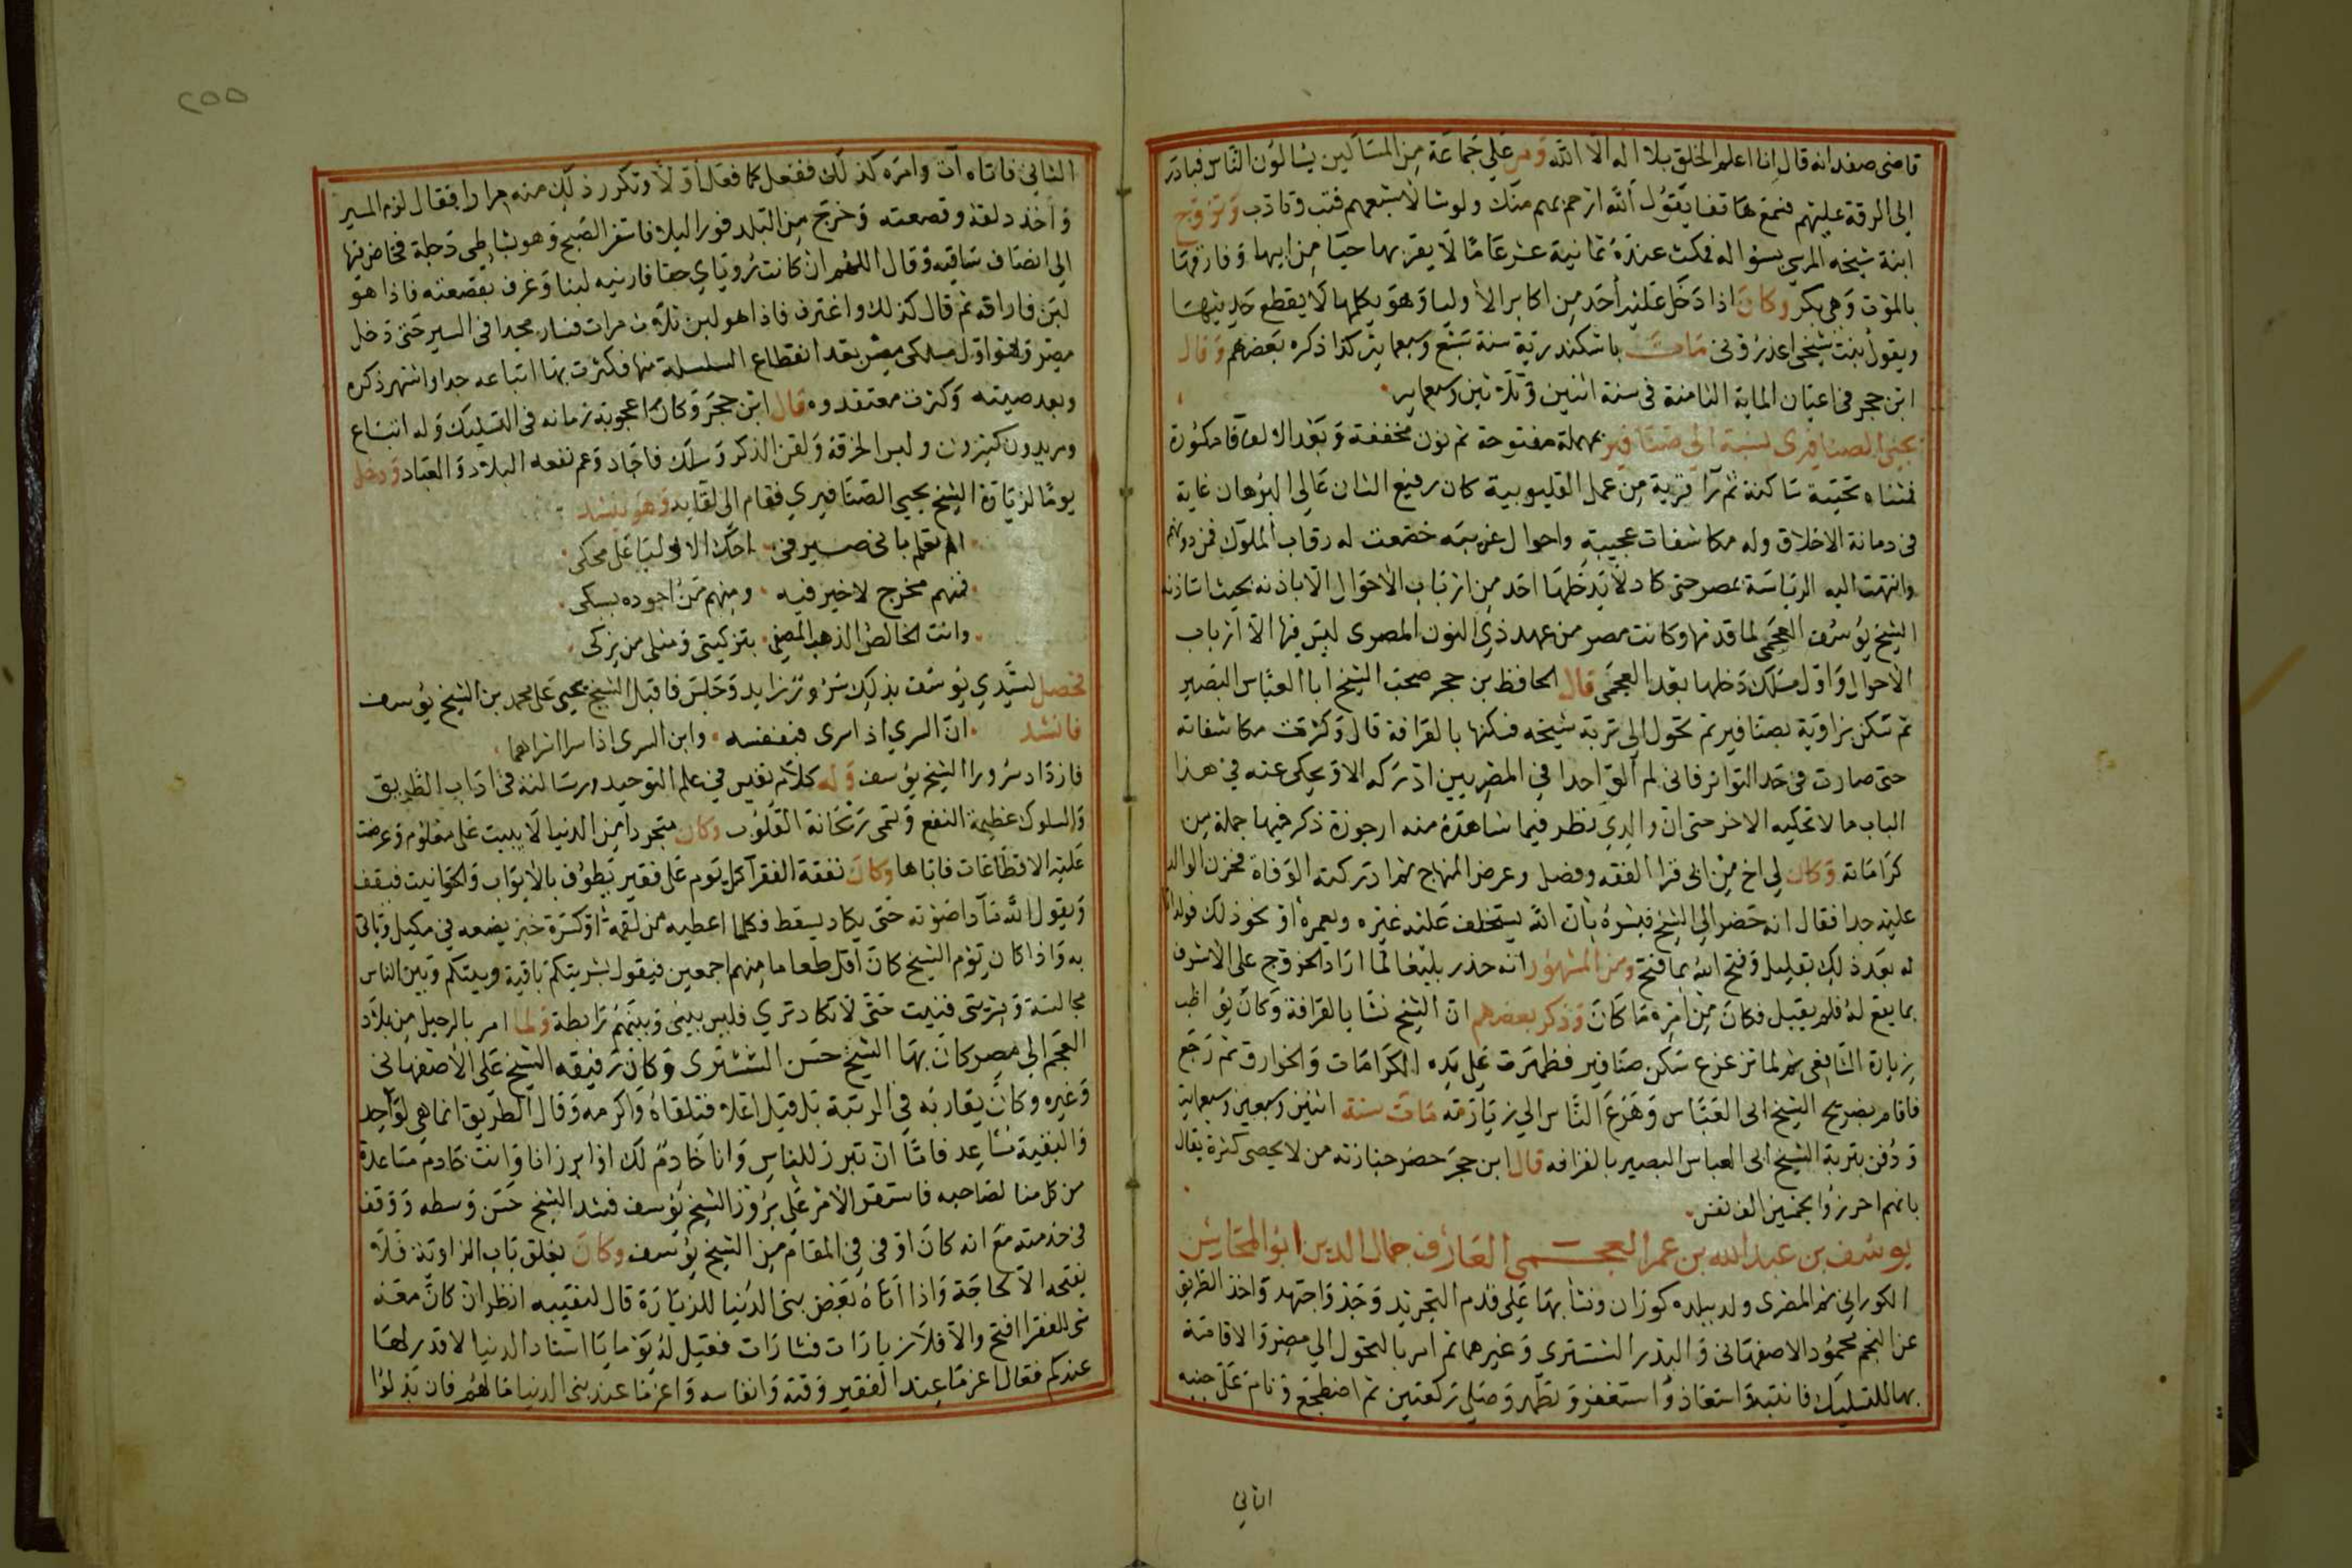 قاضى صفد انه قال انا اعلم الخلق بلا اله الا الله ومر على جماعة من المساكين يسالون الناس فبادر
الى الرقة عليهم فسمع هاتفا يقول الله ارحم بهم منك ولو شا لاشبعهم فتب وتادب وتزوج
ابنة شيخه المرسى بسواله فمكث عنده ثمانية عشر عاما لا يقربها حيا من ابيها وفارقها
بالموت وهى بكر وكان اذا دخل عليه احد من اكابر الاوليا وهو يكلمها لا يقطع حديثها
ويقول بنت شيخى اعذرونى مات باسكندرية سنة سبع وسبعماية كذا ذكره بعضهم وقال
ابن حجر فى اعيان الماية الثامنة فى سنة اثنين وثلاثين وسبعماية
يحيى الصنافيرى نسبة الى صنافير بمهملة مفتوحة ثم نون مخففة وبعد الالف فا مكسورة
فمثناه تحتية ساكنة ثم را قرية من عمل القليوبية كان رفيع الشان عالى البرهان غاية
فى دماثة الاخلاق وله مكاشفات عجيبة واحوال غريبه خضعت له رقاب الملوك فمن دونهم
وانتهت اليه الرياسة بمصر حتى كاد لا يدخلها احد من ارباب الاحوال الا باذنه بحيث استاذنه
الشيخ يوسف العجمى لما قدمها وكانت مصر من عهد ذى النون المصرى ليس فيها الا ارباب
الاحوال واول مسلك دخلها بعد العجمى قال الحافظ بن حجر صحب الشيخ ابا العباس البصير
ثم سكن بزاوية بصنافير ثم تحول الى تربة شيخه فسكنها بالقرافة قال وكثرت مكاشفاته
حتى صارت فى حد التواتر فانى لم الق احدا فى المصريين ادركه الا ويحكى عنه فى هذا
الباب ما لا يحكيه الاخر حتى ان والدى نظر فيما شاهده منه ارجوزة ذكر فيها جملة من
كراماته وكان لى اخ من ابى قرا الفقه وفضل وعرض المنهاج ثم ادركته الوفاة فحزن الوالد
عليه جدا فقال انه حضر الى الشيخ فبشره بان الله يستخلف عليه غيره ويعمره او نحو ذلك فولد انا
له بعد ذلك بقليل وفتح الله بما فتح ومن المشهور انه حذر يلبغا لما اراد الخروج على الاشرف
بما يقع له فلم يقبل فكان من امره ما كان وذكر بعضهم ان الشيخ نشا بالقرافة وكان يواظب
زيارة الشافعى ثم لما ترعرع سكن صنافير فظهرت على يده الكرامات والخوارق ثم رجع
فاقام بضريح الشيخ ابى العباس وهرع الناس الى زيارته مات سنة اثنين وسبعين وسبعماية
ودفن بتربة الشيخ ابى العباس البصير بالقرافه قال ابن حجر حضر جنازته من لا يحصى كثرة يقال
بانهم احرزوا بخمسين الف نفس
يوسف بن عبد الله بن عمر العجمى العارف جمال الدين ابو المحاسن
الكورانى ثم المصرى ولد ببلده كوران ونشا بها على قدم التجريد وجد واجتهد واخذ الطريق
عن النجم محمود الاصفهانى والبدر الششترى وغيرهما ثم امر بالتحول الى مصر والاقامة
بها للتسليك فانتبه واستعاذ واستغفر وتطهر وصلى ركعتين ثم اضطجع ونام على جنبه
الثانى
٢٥٥
الثانى فاتاه آت وامره كذلك ففعل كما فعل اولا وتكرر ذلك منه مرارا فقال لزم المسير
واخذ دلقه وقصعته وخرج من البلد فورا ليلا فاسفر الصبح وهو بشاطى دجلة فخاض فيها
الى انصاف ساقيه وقال اللهم ان كانت روياى حقا فارنيه لبنا وغرف بقصعته فاذا هو
لبن فاراقه ثم قال كذلك واغترف فاذا هو لبن ثلاث مرات فسار مجدا فى السير حتى دخل
مصر وهو اول مسلكى مصر بعد انقطاع السلسلة منها فكثرت بها اتباعه جدا واشتهر ذكره
وبعد صيته وكثرت معتقدوه قال ابن حجر وكان اعجوبة زمانه فى التسليك وله اتباع
ومريدون كثيرون ولبس الخرقة ولقن الذكر وسلك فاجاد وعم نفعه البلاد والعباد ودخل
يوما لزيارة الشيخ يحيى الصنافيرى فقام الى لقايه وهو ينشد
الم تعلم بانى صيرفى احك الاوليا على محكى
فمنهم مخرج لا خير فيه ومنهم من اجوده بسكى
وانت الخالص الذهب المصفى بتزكيتى ومثلى من يزكى
فحصل لسيدى يوسف بذلك سرور زايد وجلس فاقبل الشيخ يحيى على محمد بن الشيخ يوسف
فانشد ان السرى اذ اسرى فبنفسه وابن السرى اذا سرا اسراهما
فازداد سرورا الشيخ يوسف وله كلام نفيس فى علم التوحيد ورسالته فى اداب الطريق
والسلوك عظيمة النفع وتسمى ريحانة القلوب وكان متجردا من الدنيا لا يبيت على معلوم وعرضت
عليه الاقطاعات فاباها وكان نفقة الفقرا كل يوم على فقير يطوف بالابواب والحوانيت فيقف
ويقول الله مادا صوته حتى يكاد يسقط فكلما اعطيه من لقمة او كسرة خبز يضعه فى مكيل وياتى
به واذا كان يوم الشيخ كان اقل طعاما منهم اجمعين فيقول بشريتكم باقية وبينكم وبين الناس
مجالسة وبشريتى فنيت حتى لا تكاد ترى فليس بينى وبينهم رابطة ولما امر بالرحيل من بلاد
العجم الى مصر كان بها الشيخ حسن الششترى وكان رفيقه الشيخ على الاصفهانى
وغيره وكان يقاربه فى الرتبة بل قيل اعلا فتلقاه واكرمه وقال الطريق انما هى لواحد
والبقية تساعد فاما ان تبرز للناس وانا خادم لك او ابرز انا وانت خادم مساعدة
من كل منا لصاحبه فاستقر الامر على بروز الشيخ يوسف فشد الشيخ حسن وسطه ووقف
فى خدمته مع انه كان اوفى فى المقام من الشيخ يوسف وكان يغلق باب الزاوية فلا
يفتحه الا لحاجة واذا اتاه بعض بنى الدنيا للزيارة قال لنقيبه انظر ان كان معه
شى للفقرا افتح والا فلا زيارات فشارات فقيل له يوما يا استاذ الدنيا لا قدر لها
عندكم فقال اعز ما عند الفقير وقته وانفاسه واعز ما عند بنى الدنيا مالهم فان بذلوا